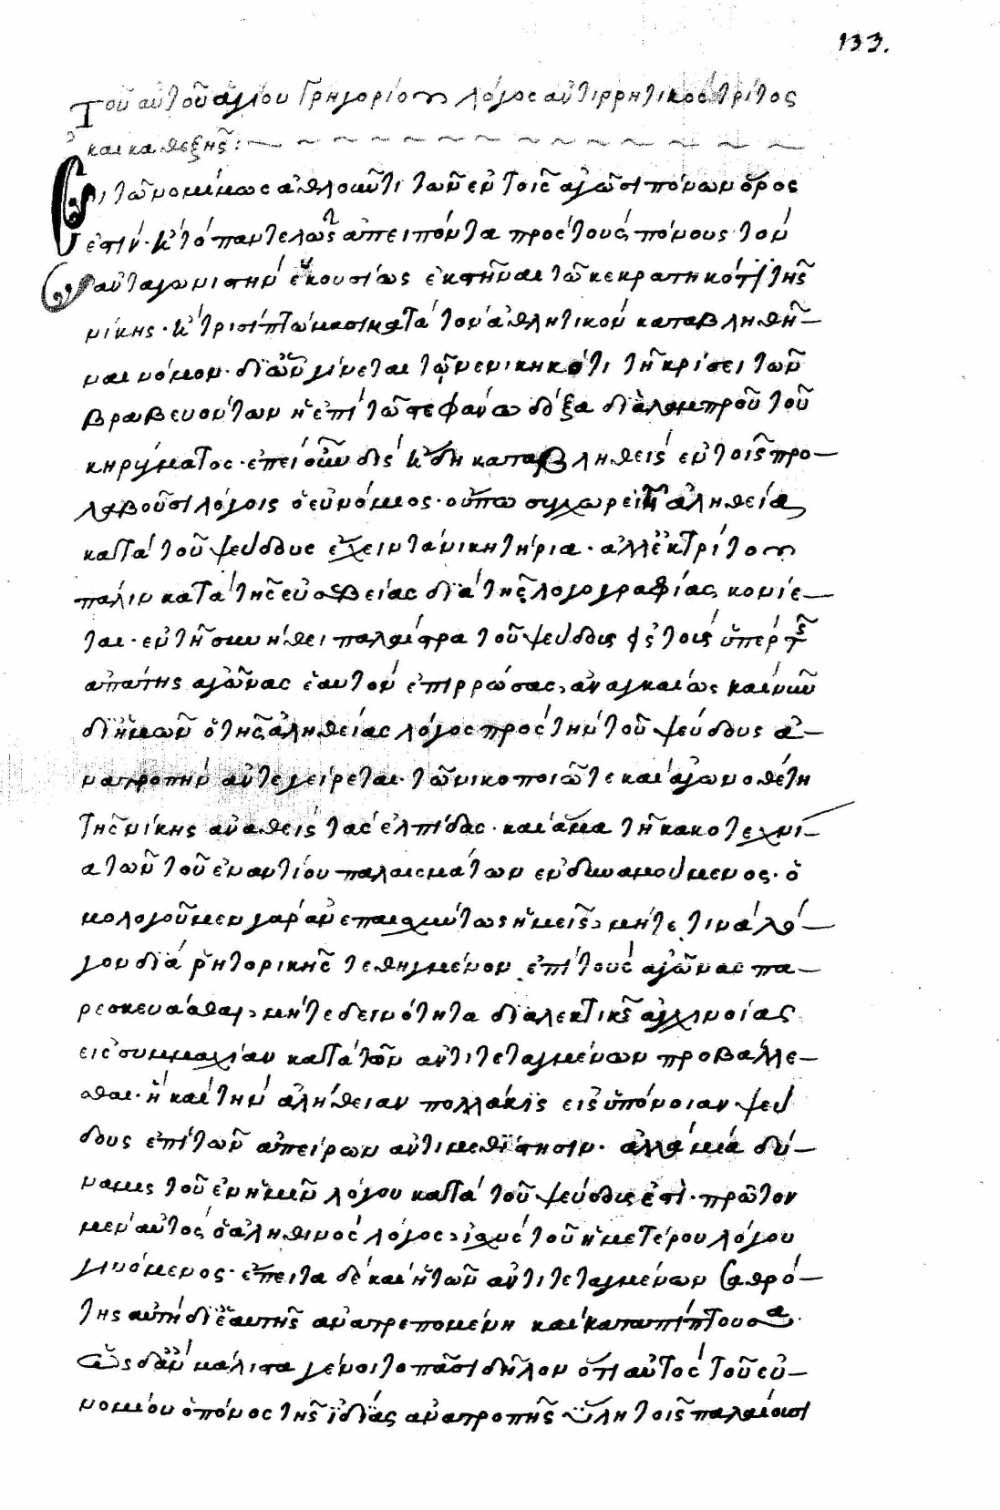 133.
Τοῦ αὐτοῦ ἁγίου Γρηγορίου λόγος ἀντιρρητικὸς τρίτος
καὶ καθεξῆς:
Εἰ τῶ νομίμως ἀθλοῦντι τῶν ἐν τοῖς ἀγῶσι πόνων ὅρος
ἐστὶν. κ τὸ παντελῶς ἀπειπόντα πρὸς τοὺς πόνους τὸν
ἀνταγωνιστὴν ἑκουσίως ἐκστῆναι τῶ κεκρατηκότι τῆς
νίκης. κ τρισὶ πτώμασι κατὰ τὸν ἀθλητικὸν καταβληθῆ–
ναι νόμον. δι ὧν γίνεται τῷ νενικηκότι τῆ κρίσει τῶν
βραβευόντων ἡ ἐπὶ τῶ στεφάνω δόξα διὰ λαμπροῦ τοῦ
κηρύγματος. ἐπεὶ οὖν δὶς ἤδη καταβληθεὶς ἐν τοῖς προ–
λαβοῦσι λόγοις ὁ εὐνόμιος. οὔπω συγχωρεῖ τῆ ἀληθεία
κατὰ τοῦ ψεύδους ἔχειν τὰ νικητήρια. ἀλλ ἐκ τρίτου
πάλιν κατὰ τῆς εὐσεβείας διὰ τῆς λογογραφίας κονίε–
ται. ἐν τῆ συνήθει παλαίστρα τοῦ ψεύδους πρὸς τοὺς ὑπὲρ τῆς
ἀπάτης ἀγῶνας ἑαυτὸν ἐπιρρώσας, ἀναγκαίως καὶ νῦν
δι ἡμῶν ὁ τῆς ἀληθείας λόγος πρὸς τὴν τοῦ ψεύδους ἀ–
νατροπὴν ἀντεγείρεται. τῶ νικοποιῶ τε καὶ ἀγωνοθέτη
τῆς νίκης ἀναθεὶς τὰς ἐλπίδας. καὶ ἅμα τῆ κακοτεχνί–
α τῶν τοῦ ἐναντίου παλαισμάτων ἐνδυναμούμενος. ὁ
μολογοῦμεν γὰρ ἀνεπαισχύντως ἡμεῖς, μήτε τινὰ λό–
γον διὰ ῥητορικῆς τεθηγμένον ἐπὶ τοὺς ἀγῶνας πα–
ρεσκευάσθαι, μήτε δεινότητα διαλεκτικῆς ἀγχινοίας
εἰς συμμαχίαν κατὰ τῶν ἀντιτεταγμένων προβάλλε–
σθαι. ἢ καὶ τὴν ἀλήθειαν πολλάκις εἰς ὑπόνοιαν ψευ
δους ἐπὶ τῶν ἀπείρων ἀντιμεθίστησιν. ἀλλὰ μία δύ–
ναμις τοῦ ἐν ἡμῖν λόγου κατὰ τοῦ ψεύδους ἐστὶ. πρῶτον
μὲν αὐτὸς ὁ ἀληθινὸς λόγος, ἰσχὺς τοῦ ἡμετέρου λόγου
γινόμενος. ἔπειτα δὲ καὶ ἡ τῶν ἀντιτεταγμένων σαθρό–
της αὐτὴ δι ἑαυτῆς ἀνατρεπομένη καὶ καταπίπτουσα.
ὡς δ ἂν μάλιστα γένοιτο πᾶσι δῆλον ὅτι αὐτὸς τοῦ εὐ–
νομίου ὁ πόνος τῆς ἰδίας ἀνατροπῆς ὕλη τοῖς παλαίουσι